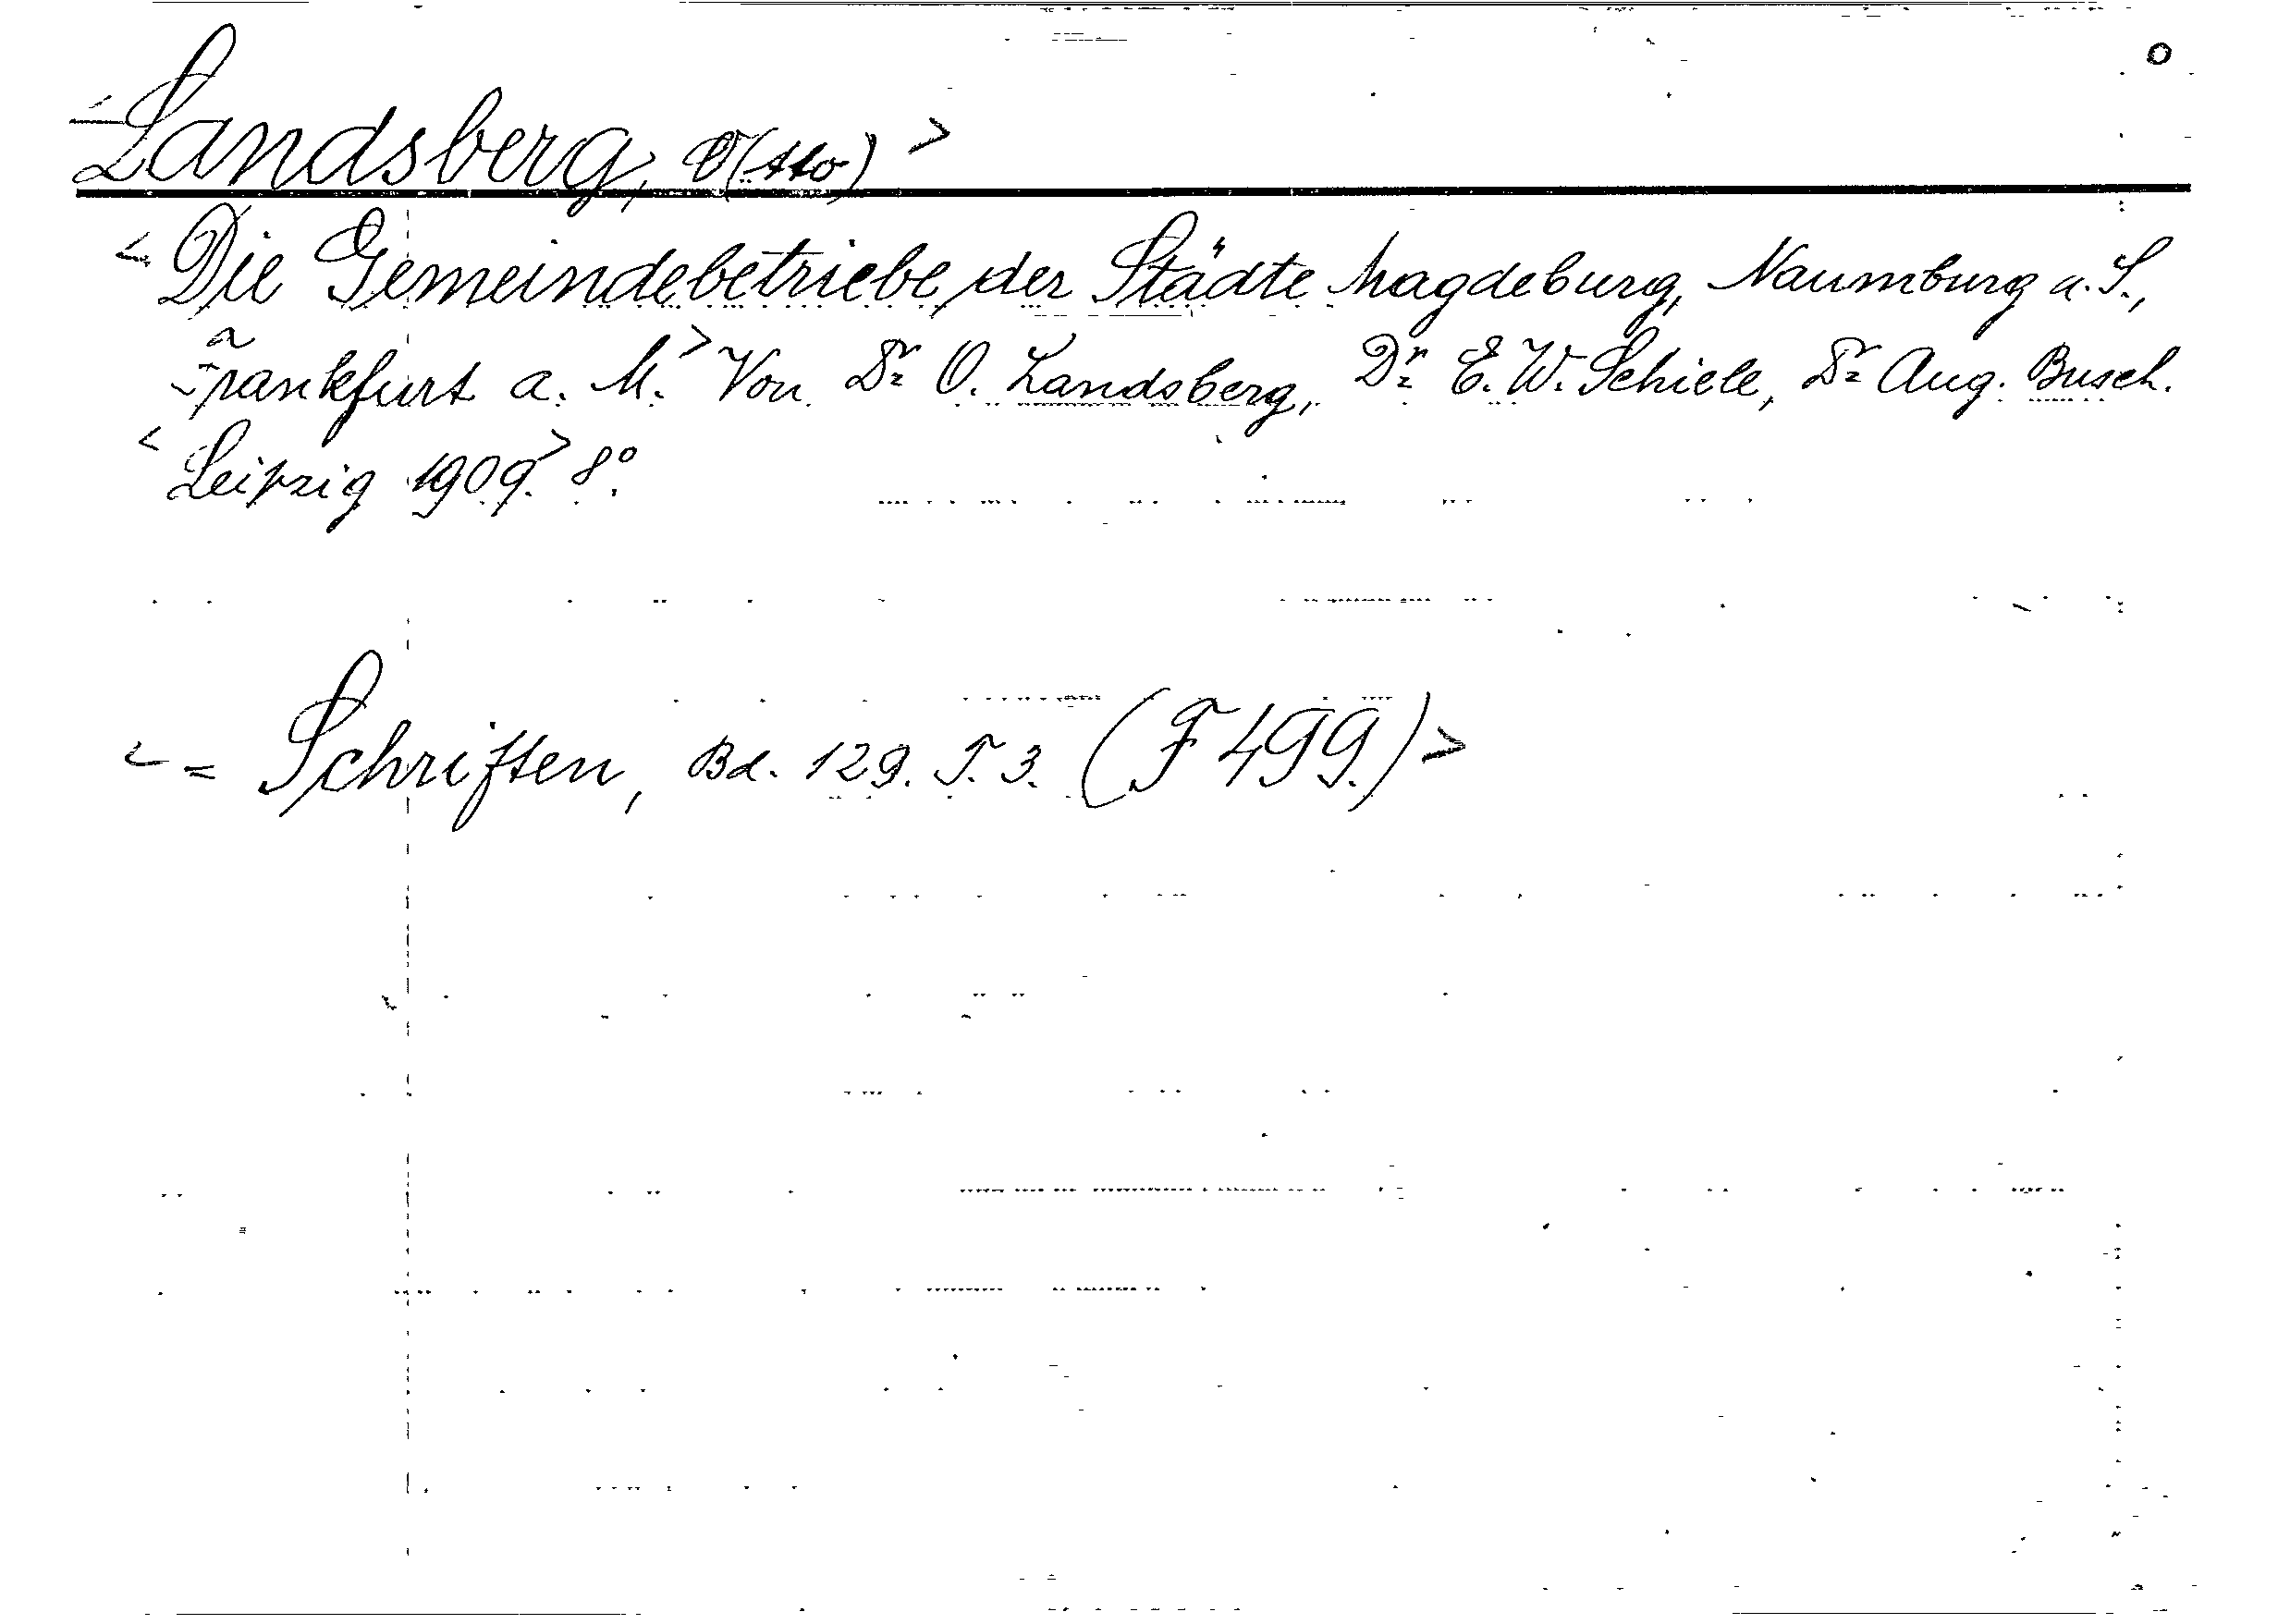 <Landsberg, O(tto)>
<Die Gemeindebetriebe der Städte Magdeburg, Naumburg a. S.,
Frankfurt a. M.> Von Dr. O. Landsberg, Dr. E. W. Schiele, Dr. Aug. Busch.
<Leipzig 1909.> 8°.
<= Schriften, Bd. 129. T. 3. (F 499.)>